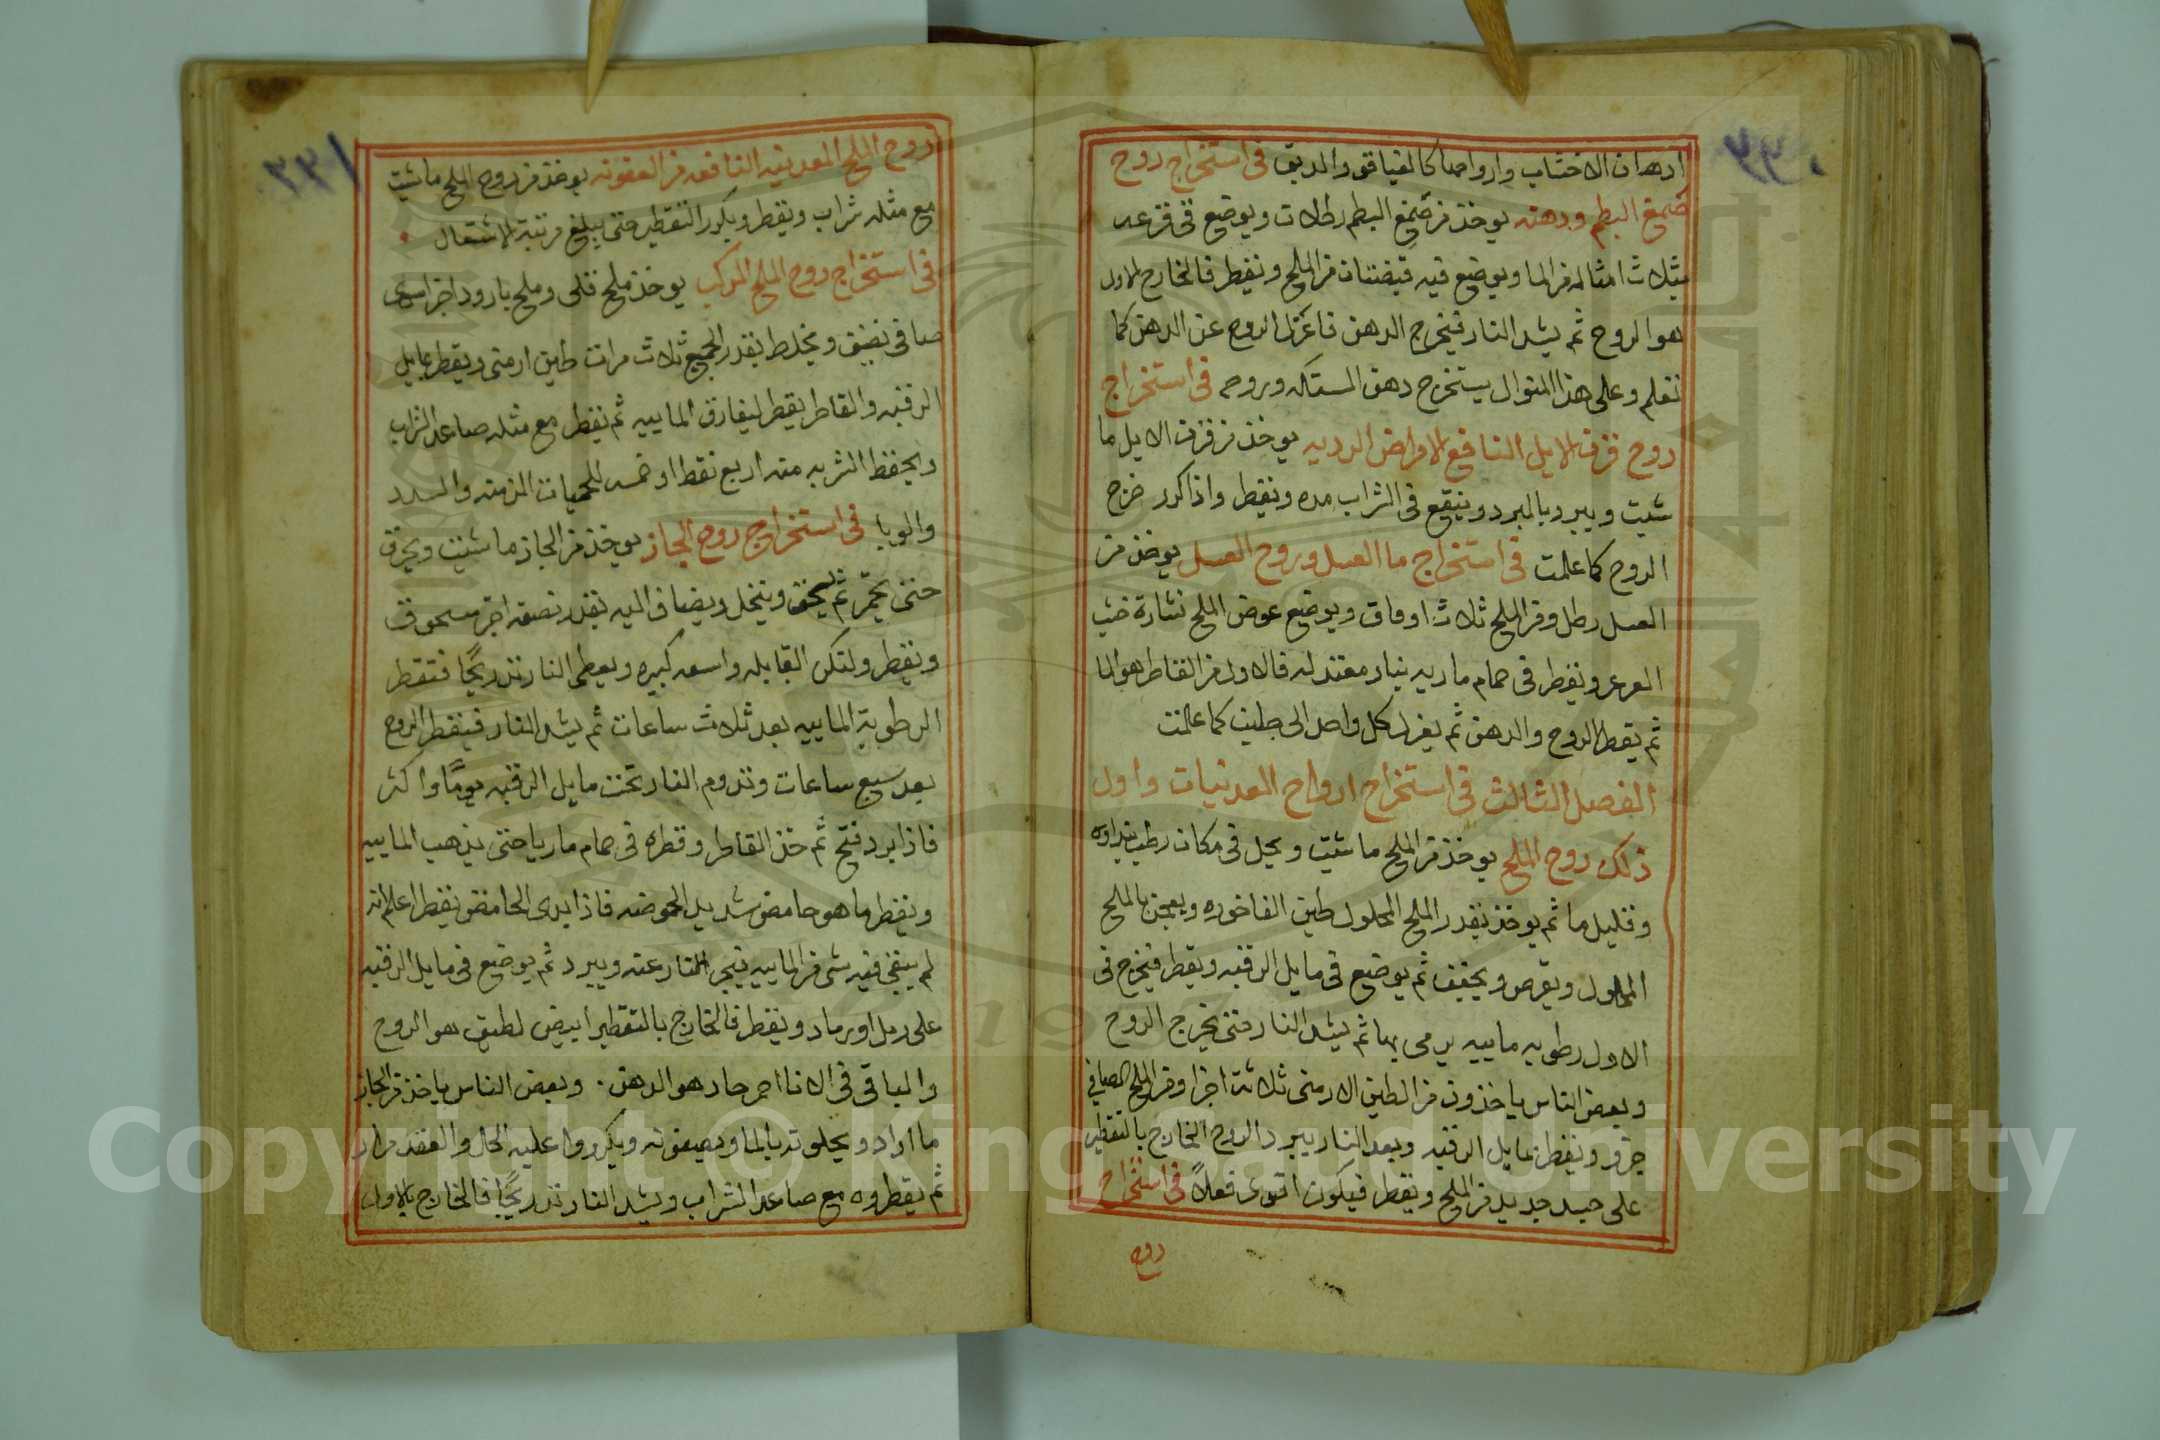 ادهان الاخشاب وارواحها كالغياقو والدبق في استخراج روح
صمغ البطم ودهنه يوخذ من صمغ البطم رطلان ويوضع في قرعه
بثلاث امثاله من الما ويوضع فيه قبضتان من الملح ويقطر فالخارج الاول
هو الروح ثم يشد النار فيخرج الدهن فاعزل الروح عن الدهن كما
تعلم وعلى هذا المنوال يستخرج دهن المستكه وروحه في استخراج
روح قرن الايل النافع للامراض الرديه يوخذ من قرن الايل ما
شيت ويبرد بالمبرد وينقع في الشراب مده ويقطر واذا كرر خرج
الروح كما علمت في استخراج ما العسل وروح العسل يوخذ من
العسل رطل ومن الملح ثلاث اواق ويوضع عوض الملح نشارة خشب
العرعر ويقطر في حمام ماريه بنار معتدله فالاول من القاطر هو الما
ثم يقطر الروح والدهن ثم يعزل كل واحد الى كما علمت
الفصل الثالث في استخراج ارواح المعدنيات واول
ذلك روح الملح يوخذ من الملح ما شيت ويحل في مكان رطب بنداوه
وقليل ما ثم يوخذ بقدر الملح المحلول طين الفاخوره ويعجن بالملح
المحلول ويقرص ويجفف ثم يوضع في مايل الرقبه ويقطر فيخرج في
الاول رطوبه ماييه يرمى بها ثم يشد النار حتى يخرج الروح
وبعض الناس ياخذون من الطين الارمني ثلاثة اجزا ومن الملح الصافي
جزو ويقطر بمايل الرقبه وبعد النار يبرد الروح الخارج بالتقطير
على جسد جديد من الملح ويقطر فيكون اقوى فعلاً في استخراج
روح
روح الملح المعدنيه النافعه من العفونه يوخذ من روح الملح ما شيت
مع مثله شراب ويقطر ويكرر التقطير حتى يبلغ مرتبة الاشتعال
في استخراج روح الملح المركب يوخذ ملح قلي وملح بارود اجزا سوى
صافي نقيق ويخلط بقدر الجميع ثلاث مرات طين ارمني ويقطر بمايل
الرقبه والقاطر يقطر ليفارق الماييه ثم يقطر مع مثله صاعد الشراب
ويحفظ الشربه منه اربع نقط او خمسه للحميات المزمنه والسدد
والوبا في استخراج روح الجاز يوخذ من الجاز ما شيت ويحرق
حتى يحمر ثم يسحق وينخل ويضاف اليه بقدر نصفه اجر مسحوق
ويقطر ولتكن القابله واسعه كبيره ويعطى النار تدريجًا فتقطر
الرطوبة الماييه بعد ثلاث ساعات ثم يشد النار فيقطر الروح
بعد سبع ساعات وتدوم النار تحت مايل الرقبه يومًا واكثر
فاذا برد فتح ثم خذ القاطر وقطره في حمام ماريا حتى يذهب الماييه
ويقطر ما هو حامض شديد الحموضه فاذا بدى الحامض يقطر اعلم انه
لم يبقى فيه شي من الماييه فيجر النار عنه ويبرد ثم يوضع في مايل الرقبه
على رمل او رماد ويقطر فالخارج بالتقطير ابيض لطيف هو الروح
والباقي في الانا احمر حار هو الدهن. وبعض الناس ياخذ من الجاز
ما اراد ويحلونه بالما ويصفونه ويكرروا عليه الحل والعقد مرار
ثم يقطروه مع صاعد الشراب ويشد النار تدريجًا فالخارج بالاول